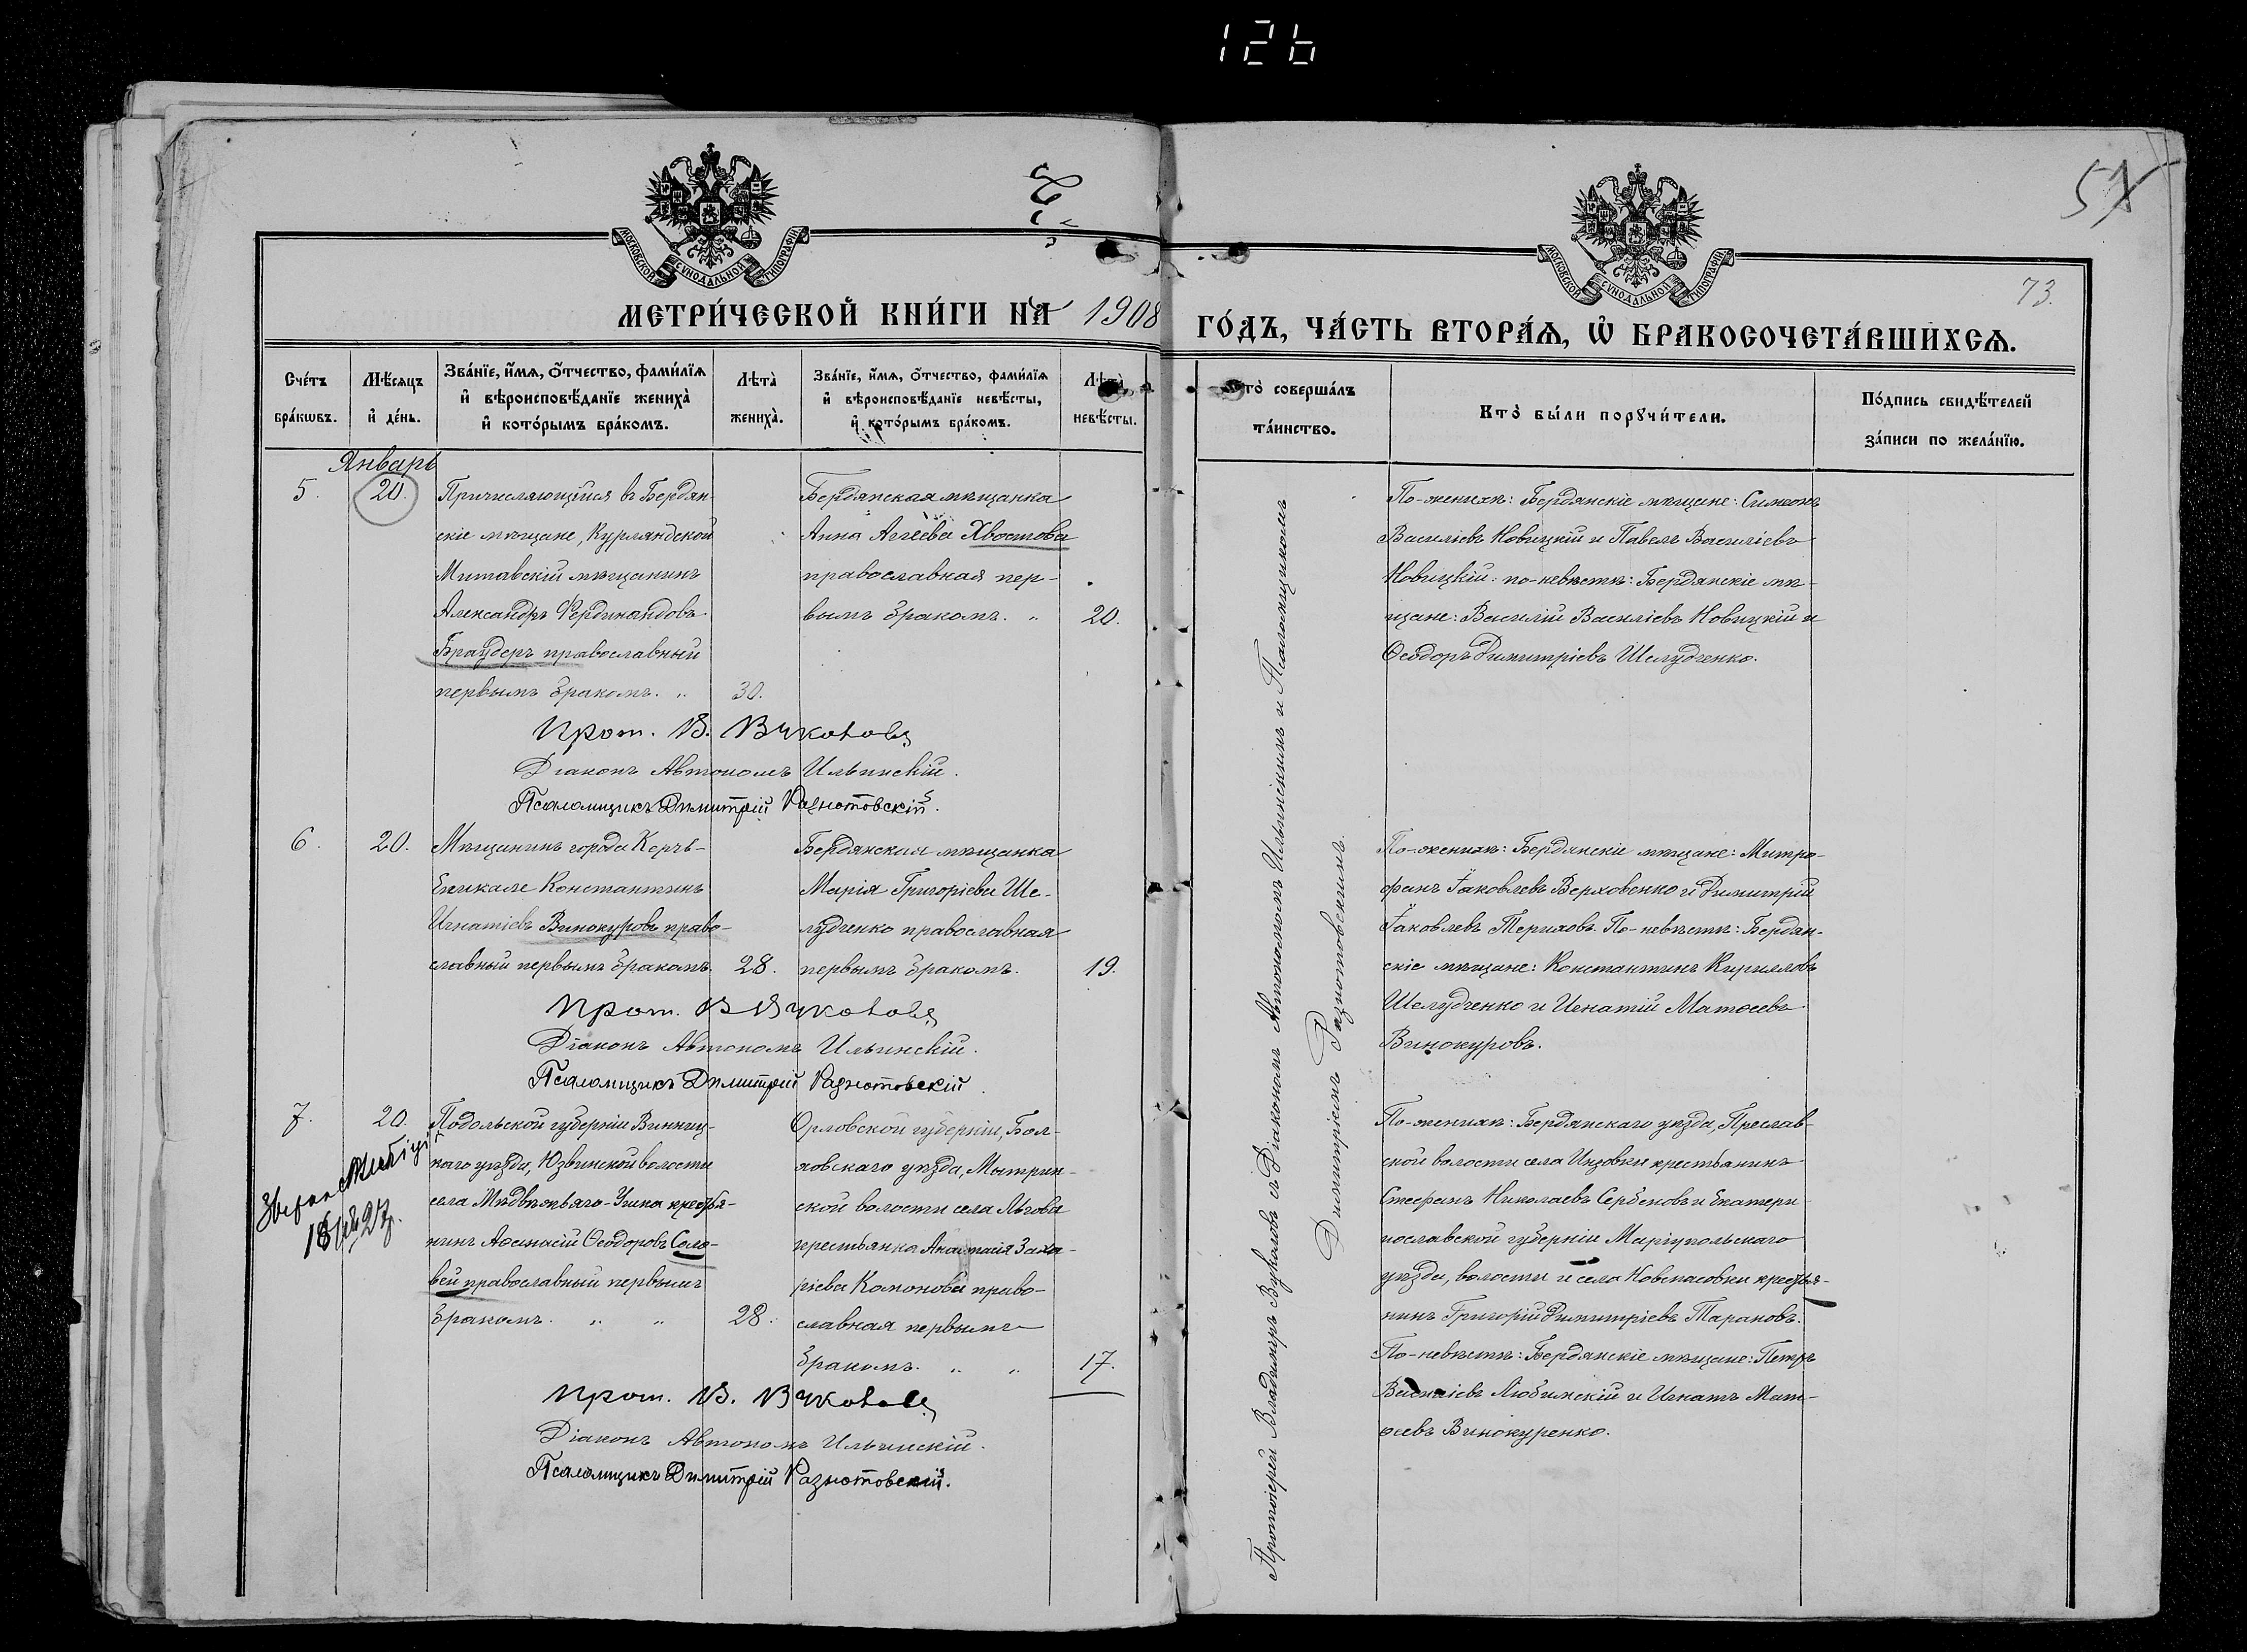 126
51
73.
МОСКОВСКОЙ СУНОДАЛЬНОЙ ТИПОГРАФІИ
МОСКОВСКОЙ СУНОДАЛЬНОЙ ТИПОГРАФІИ
МЕТРИ́ЧЕСКОЙ КНИ́ГИ НА 1908
ГО́ДЪ, ЧА́СТЬ ВТОРА́Ѧ, Ѡ҆ БРАКОСОЧЕТА́ВШИХСѦ.
Сче́тъ бра́кѡвъ.
Мѣ́сяцъ и҆ де́нь.
Зва́нїе, и҆́мѧ, ѻ҆́тчество, фами́лїѧ и҆ вѣроисповѣ́данїе жениха̀ и҆ кото́рымъ бра́комъ.
Лѣта̀ жениха̀.
Зва́нїе, и҆́мѧ, ѻ҆́тчество, фами́лїѧ и҆ вѣроисповѣ́данїе невѣ́сты, и҆ кото́рымъ бра́комъ.
Лѣта̀ невѣ́сты.
Кто̀ соверша́лъ та́инство.
Кто̀ бы́ли порꙋчи́тели.
По́дпись свидѣ́телей за́писи по жела́нїю.
Январь
5. 20.
Причисляющійся въ Бердян-
скіе мѣщане, Курляндской
Митавскій мѣщанинъ
Александръ Фердинандовъ
Браудеръ православный
первымъ бракомъ. „ 30.
Бердянская мѣщанка
Анна Агѣева Хвостова
православная пер-
вымъ бракомъ. „ 20.
По-женихѣ: Бердянскіе мѣщане: Симеонъ
Василіевъ Новицкій и Павелъ Василіевъ
Новицкій. по-невѣстѣ: Бердянскіе мѣ-
щане: Василій Василіевъ Новицкій и
Ѳеодоръ Димитріевъ Шелудченко.
Прот. В. Вуколовъ
Діаконъ Автономъ Ильинскій.
Псаломщикъ Димитрій Разнотовскій.
6. 20.
Мѣщанинъ города Керчь-
Еникале Константинъ
Игнатіевъ Винокуровъ право-
славный первымъ бракомъ. 28.
Бердянская мѣщанка
Марія Григоріева Ше-
лудченко православная
первымъ бракомъ. 19.
По-женихѣ: Бердянскіе мѣщане: Митро-
фанъ Іаковлевъ Верховенко и Димитрій
Іаковлевъ Териховъ. По-невѣстѣ: Бердян-
скіе мѣщане: Константинъ Кирилловъ
Шелудченко и Игнатій Матѳеевъ
Винокуровъ.
Прот. В Вуколовъ
Діаконъ Автономъ Ильинскій.
Псаломщикъ Димитрій Разнотовскій.
7. 20.
Подольской губерніи Винниц-
каго уѣзда, Юзвинской волости
села Мѣдвѣжьяго-Ушка крестья-
нинъ Аѳанасій Ѳеодоровъ Соло-
вей православный первымъ
бракомъ. „ „ 28.
Орловской губерніи, Бол-
ховскаго уѣзда, Мытрин-
ской волости села Льгова
крестьянка Анастасія Заха-
ріева Комонова право-
славная первымъ
бракомъ. „ „ 17.
По-женихѣ: Бердянскаго уѣзда, Преслав-
ской волости села Инзовки крестьянинъ
Стефанъ Николаевъ Сербеновъ и Екатери-
нославской губерніи Маріупольскаго
уѣзда, волости и села Новспасовки крестья-
нинъ Григорій Димитріевъ Тарановъ.
По-невѣстѣ: Бердянскіе мѣщане: Петръ
Василіевъ Любимскій и Игнатъ Мат-
ѳеевъ Винокуренко.
Прот. В. Вуколовъ
Діаконъ Автономъ Ильинскій.
Псаломщикъ Димитрій Разнотовскій.
Протоіерей Владиміръ Вуколовъ съ Діакономъ Автономомъ Ильинскимъ и Псаломщикомъ
Димитріемъ Разнотовскимъ.